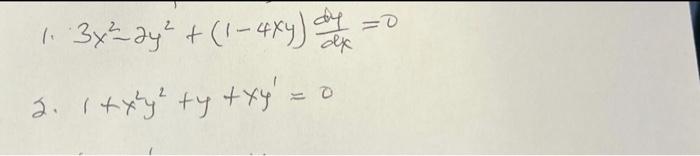 1. 3x²-2y² + (1-4xy) dy/dx = 0
2. 1 + x²y² + y + xy' = 0